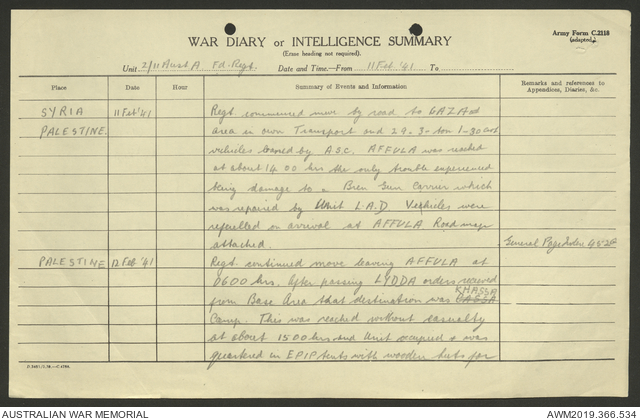 WAR DIARY or INTELLIGENCE SUMMARY
(Erase heading not required).
Army Form C.2118
(adapted)
Unit 2/11 Aust A Fd. Regt. Date and Time.—From 11 Feb '41 To
Place Date Hour Summary of Events and Information Remarks and references to Appendices, Diaries, &c.
SYRIA 11 Feb '41 Regt commenced move by road to GAZA
PALESTINE. area in own Transport and 29 - 3-ton 1-30 cwt
vehicles loaned by A.S.C. AFFULA was reached
at about 1400 hrs the only trouble experienced
being damage to a Bren Gun Carrier which
was repaired by Unit L.A.D Vehicles were
refuelled on arrival at AFFULA Road map
attached. General Page
PALESTINE 12 Feb '41 Regt continued move leaving AFFULA at
0600 hrs. After passing LYDDA orders received
from Base Area that destination was KHASSA
Camp. This was reached without casualty
at about 1500 hrs and Unit occupied & was
quartered in EPIP tents with wooden huts for
AUSTRALIAN WAR MEMORIAL AWM2019.366.534